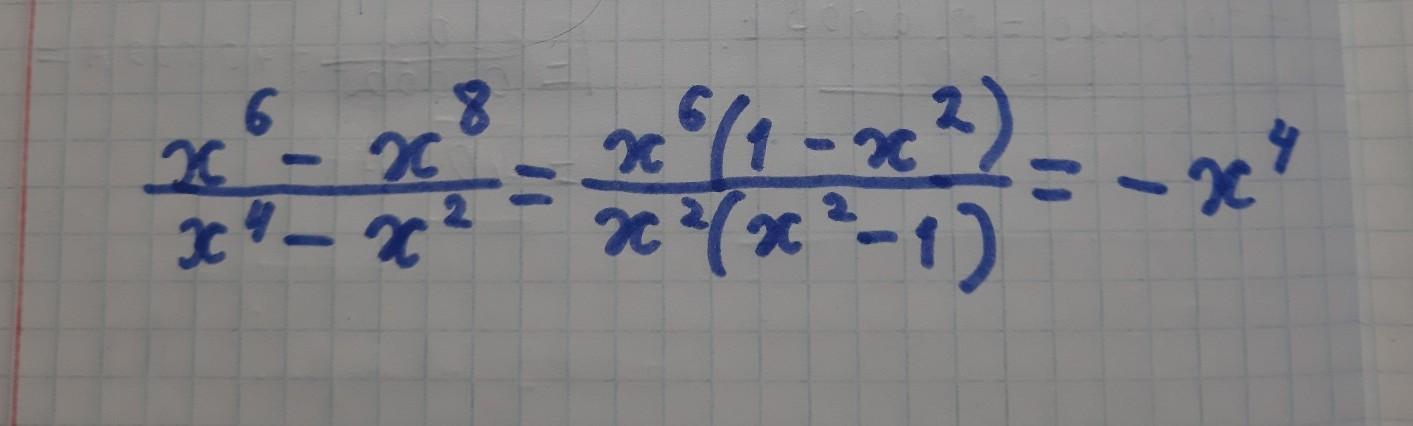 \frac{x^6 - x^8}{x^4 - x^2} = \frac{x^6(1 - x^2)}{x^2(x^2 - 1)} = -x^4